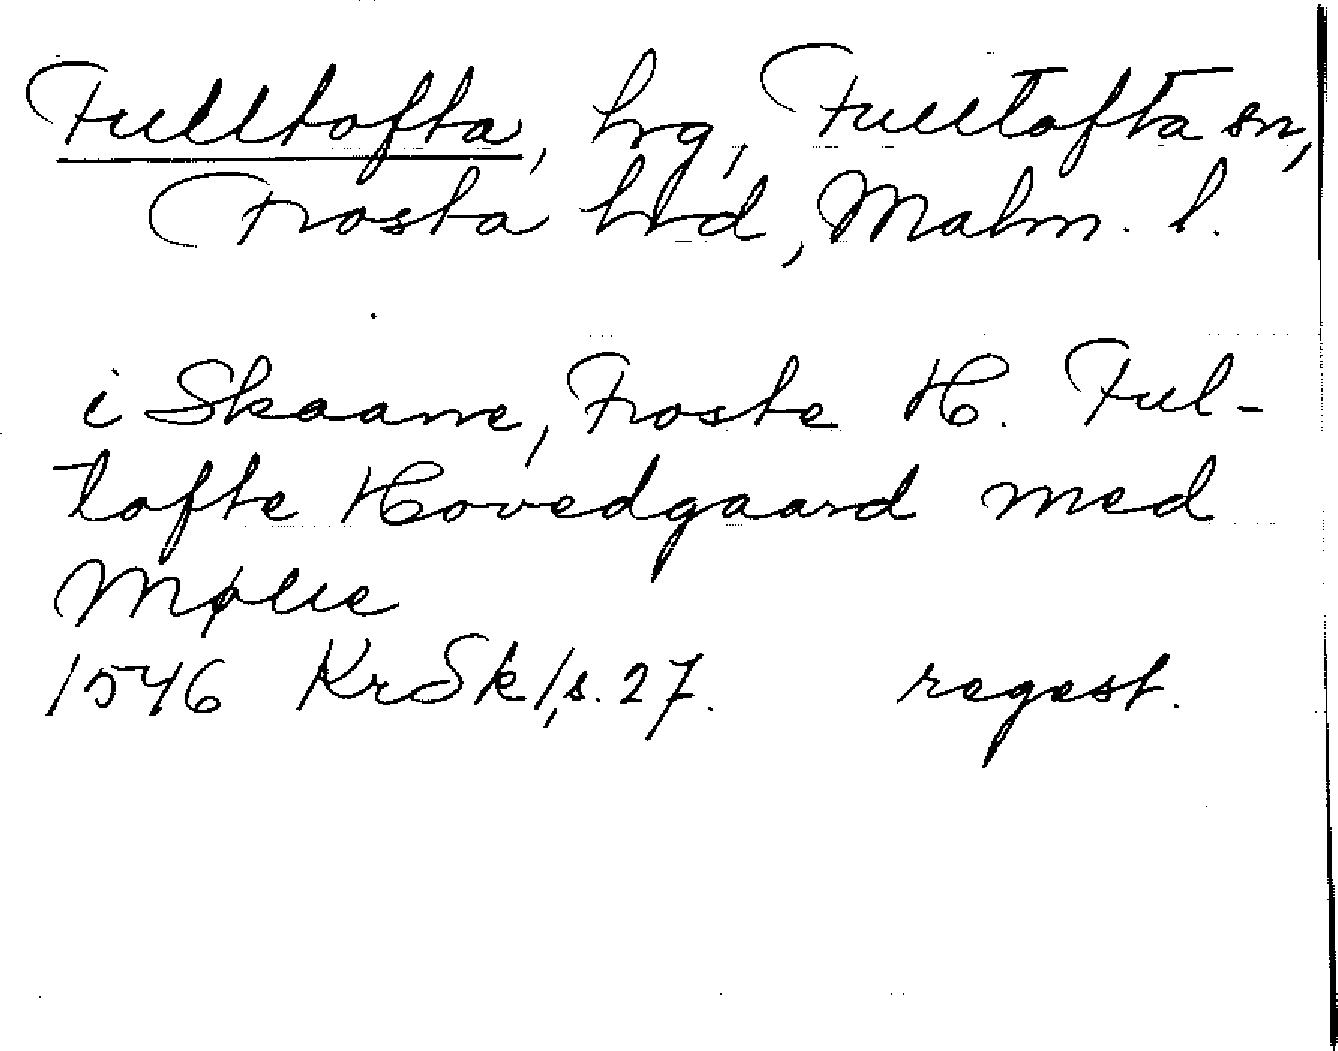 Fulltofta, hrg, Fulltofta sn,
Frosta hrd, Malm. l.
i Skaane, Froste H. Ful-
tofte Hovedgaard med
Mølle
1546 KrSk 1, s. 27. regest.